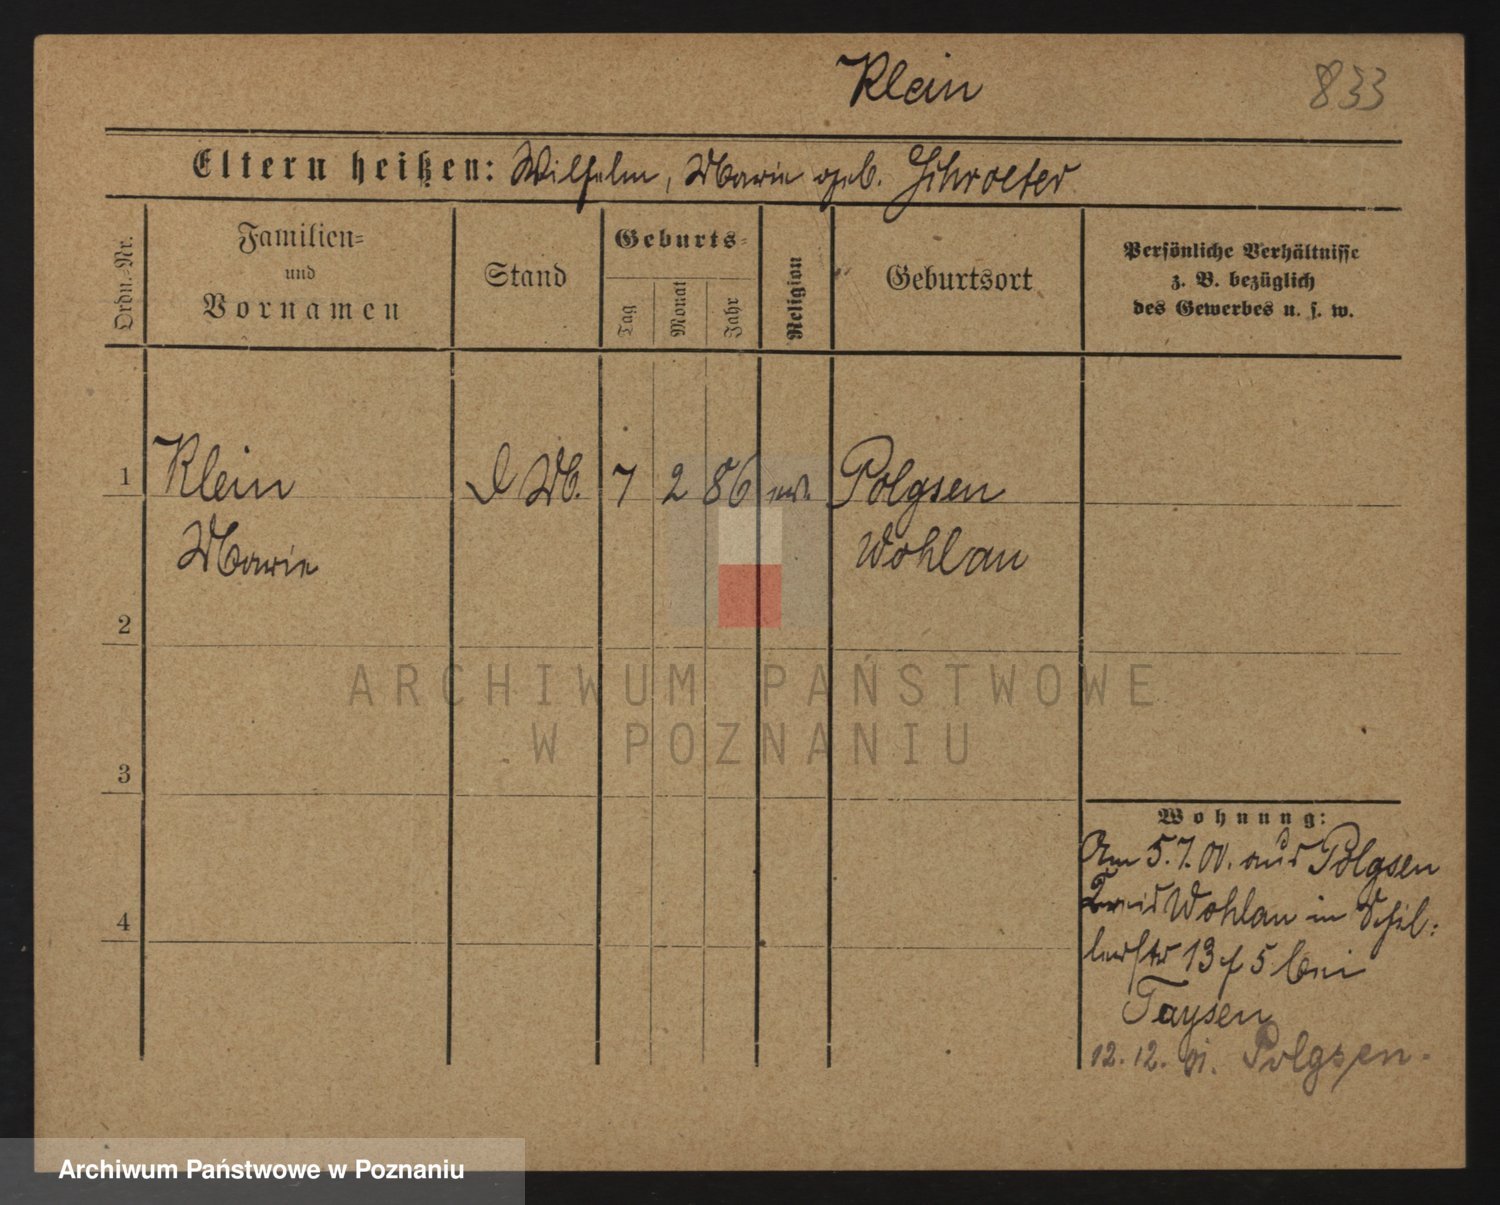 Klein 833
Eltern heißen: Wilhelm, Marie geb. Schroeter
Ordn.-Nr.
Familien-
und
Vornamen
Stand
Geburts-
Tag
Monat
Jahr
Religion
Geburtsort
Persönliche Verhältnisse
z. B. bezüglich
des Gewerbes u. s. w.
1 Klein D M. 7 2 86 ev. Polgsen
Marie Wohlau
2
3
4
Wohnung:
Am 5.7.01. aus Polgsen
Kreis Wohlau in Schil-
lerstr 13 f 5 bei
Taysen
12. 12. 01. Polgsen.
ARCHIWUM PAŃSTWOWE
W POZNANIU
Archiwum Państwowe w Poznaniu